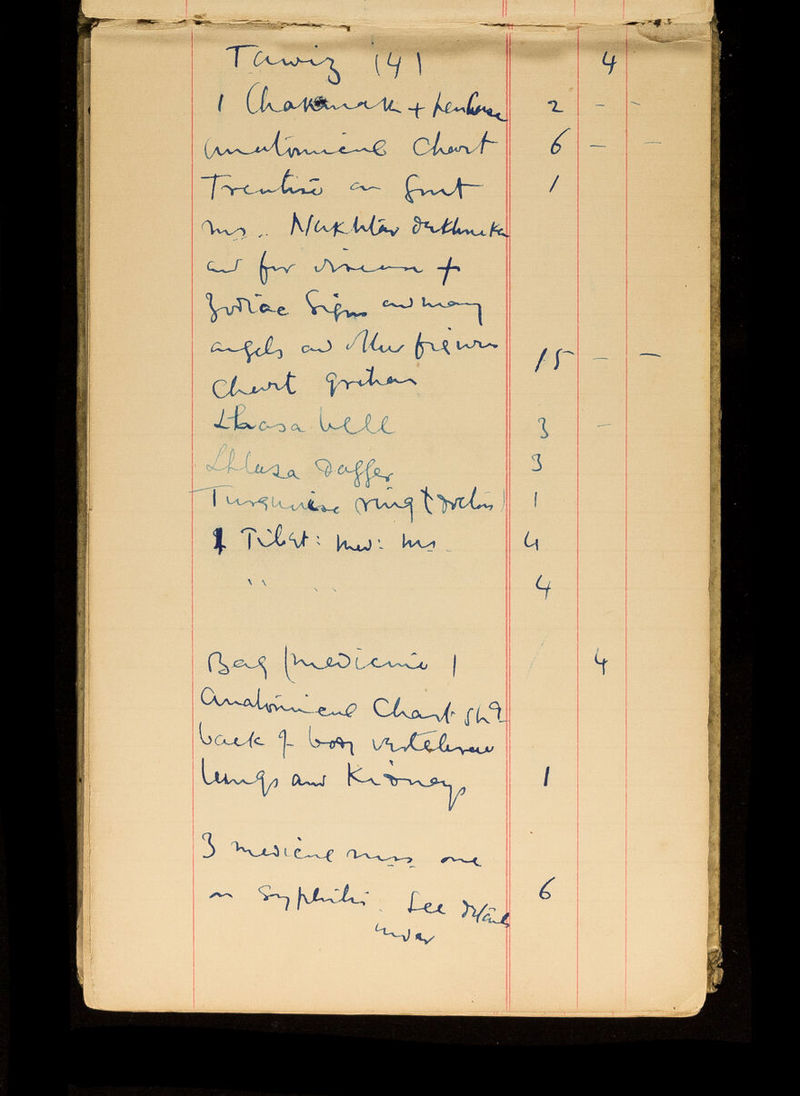 Tawiz (4) 4
1 Chakmak + penknife 2 - -
Anatomical Chart 6 - -
Treatise on Gout 1
ms.. Nakhtar
and for disease +
Zodiac Signs and many
angels and other figures 15 - -
Chart
Lhasa bell 3 -
Lhasa Dagger 3
Turquoise ring 1
1 Tibet: med: ms. 4
" " 4
Bag (medicine) 4
Anatomical Chart shg
back of body vertebrae
lungs and Kidneys 1
3 medical mss. one
on Syphilis. See details 6
under